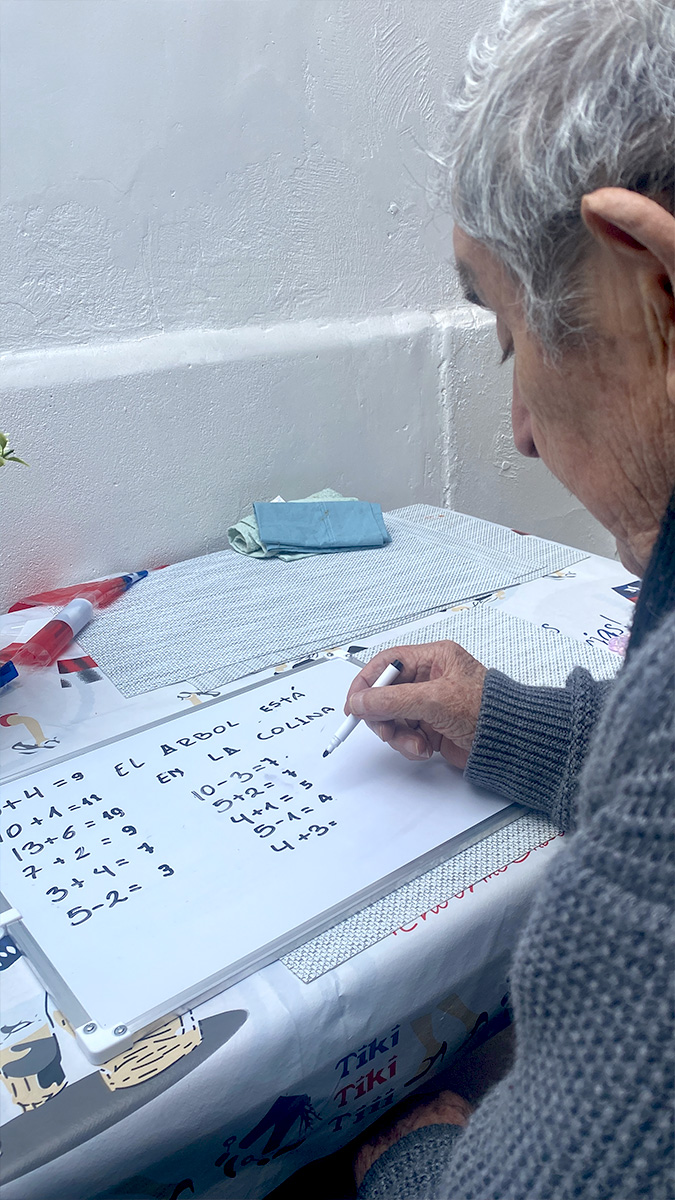 EL ARBOL ESTÁ
EN LA COLINA
+4=9
10+1=11
13+6=19
7+2=9
3+4=7
5-2=3
10-3=7
5+2=7
4+1=5
5-1=4
4+3=
Tiki
Tiki
Tiii